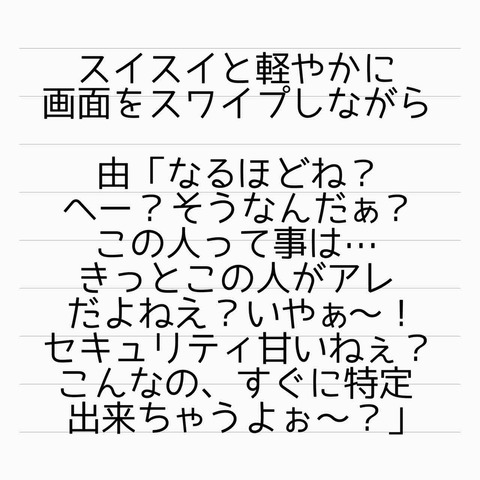 スイスイと軽やかに
画面をスワイプしながら
由「なるほどね？
へー？そうなんだぁ？
この人って事は…
きっとこの人がアレ
だよねえ？いやぁ〜！
セキュリティ甘いねぇ？
こんなの、すぐに特定
出来ちゃうよぉ〜？」